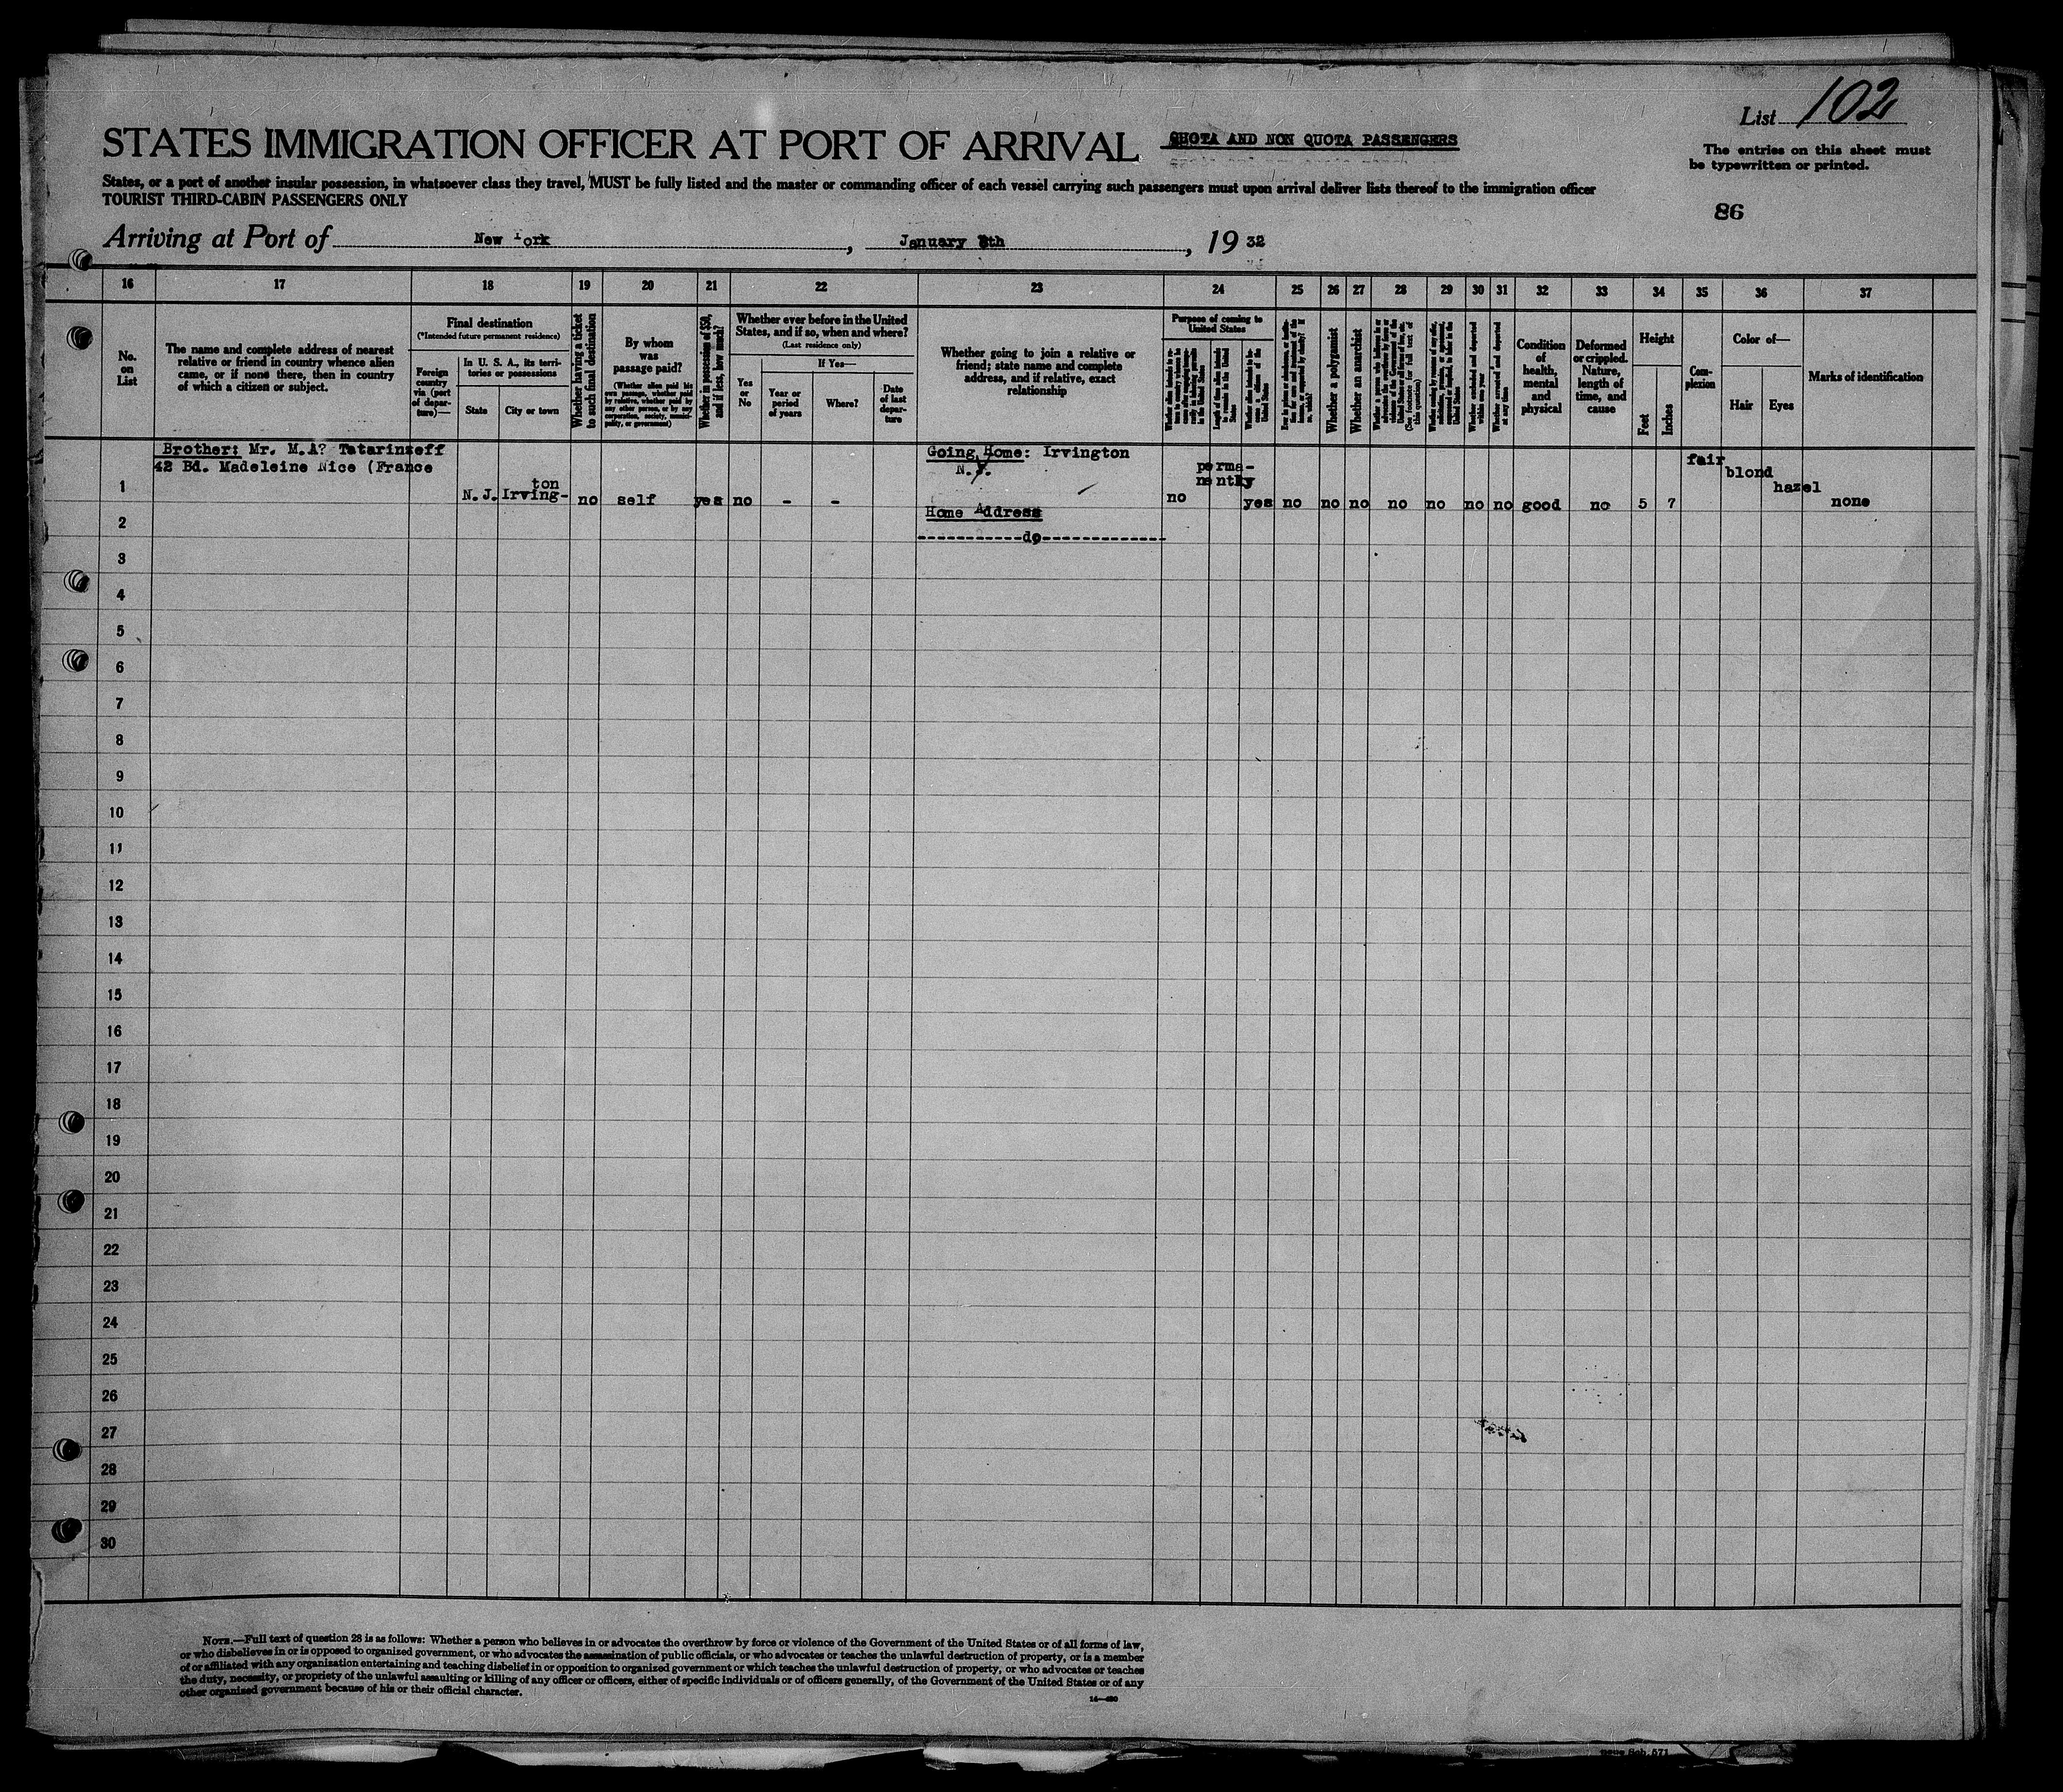 List 102
STATES IMMIGRATION OFFICER AT PORT OF ARRIVAL
QUOTA AND NON QUOTA PASSENGERS
The entries on this sheet must
be typewritten or printed.
States, or a port of another insular possession, in whatsoever class they travel, MUST be fully listed and the master or commanding officer of each vessel carrying such passengers must upon arrival deliver lists thereof to the immigration officer
TOURIST THIRD-CABIN PASSENGERS ONLY
86
Arriving at Port of New York, January 8th, 19 32
16 17 18 19 20 21 22 23 24 25 26 27 28 29 30 31 32 33 34 35 36 37
No.
on
List
The name and complete address of nearest
relative or friend in country whence alien
came, or if none there, then in country
of which a citizen or subject.
Final destination
(*Intended future permanent residence)
Foreign
country
via (port
of depar-
ture)—
In U. S. A., its terri-
tories or possessions
State
City or town
Whether having a ticket
to such final destination
By whom
was
passage paid?
(Whether alien paid his
own passage, whether paid
by relative, whether paid by
any other person, or by any
corporation, society, munici-
pality, or government)
Whether in possession of $50,
and if less, how much?
Whether ever before in the United
States, and if so, when and where?
(Last residence only)
Yes
or
No
If Yes—
Year or
period
of years
Where?
Date
of last
depar-
ture
Whether going to join a relative or
friend; state name and complete
address, and if relative, exact
relationship
Purpose of coming to
United States
Length of time alien intends
to remain in the United
States
Whether alien intends to be-
come a citizen of the
United States
Whether a polygamist
Whether an anarchist
(See footnote for full text of
this question)
Whether arrested and deported
at any time
Condition
of
health,
mental
and
physical
Deformed
or crippled.
Nature,
length of
time, and
cause
Height
Feet
Inches
Com-
plexion
Color of—
Hair
Eyes
Marks of identification
Brother: Mr. M.A? Tatarinseff
42 Bd. Madeleine Nice (France
Going Home: Irvington
N.J.
perma-
nently
fair
blond
hazel
1
ton
N.J. Irving- no self yes no - - no yes no no no no no no no good no 5 7 none
Home Address
2
-----------do-------------
3
4
5
6
7
8
9
10
11
12
13
14
15
16
17
18
19
20
21
22
23
24
25
26
27
28
29
30
NOTE.—Full text of question 28 is as follows: Whether a person who believes in or advocates the overthrow by force or violence of the Government of the United States or of all forms of law,
or who disbelieves in or is opposed to organized government, or who advocates the assassination of public officials, or who advocates or teaches the unlawful destruction of property, or is a member
of or affiliated with any organization entertaining and teaching disbelief in or opposition to organized government or which teaches the unlawful destruction of property, or who advocates or teaches
the duty, necessity, or propriety of the unlawful assaulting or killing of any officer or officers, either of specific individuals or of officers generally, of the Government of the United States or of any
other organized government because of his or their official character.